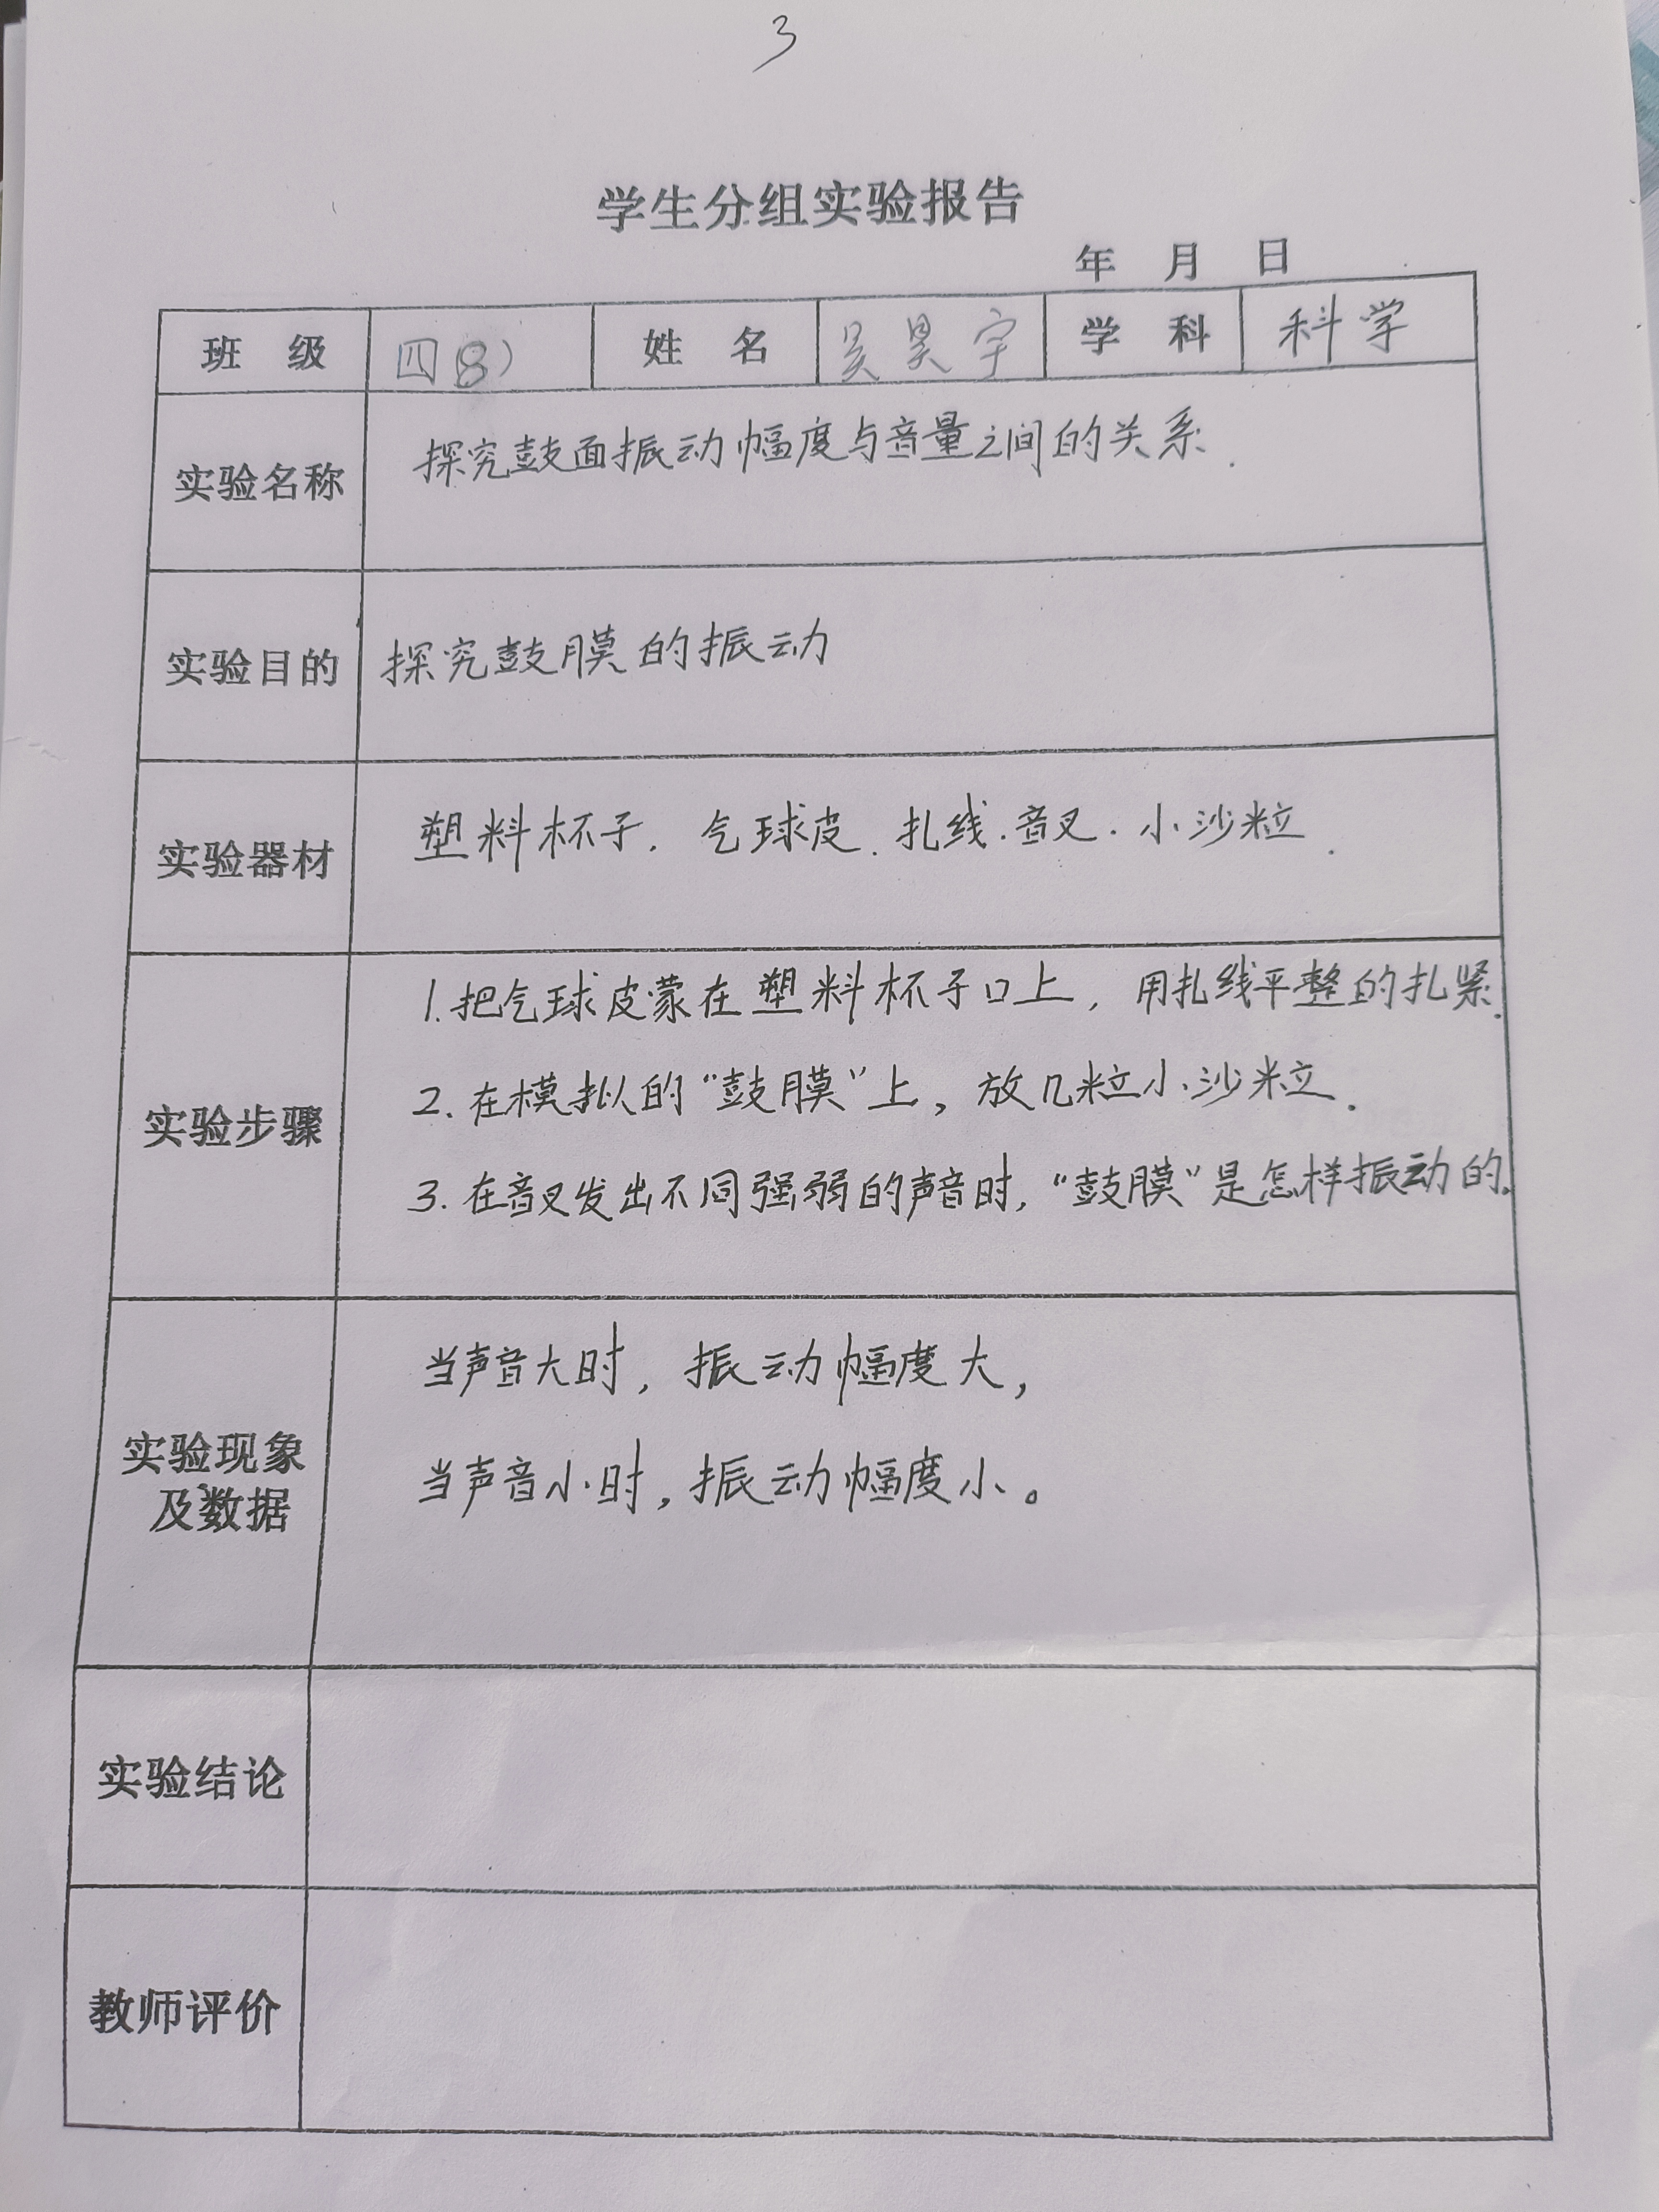 3
学生分组实验报告
年 月 日
班 级 四(8) 姓 名 吴昊宇 学 科 科学
实验名称 探究鼓面振动幅度与音量之间的关系.
实验目的 探究鼓膜的振动
实验器材 塑料杯子. 气球皮. 扎线. 音叉. 小沙粒.
1.把气球皮蒙在塑料杯子口上,用扎线平整的扎紧.
实验步骤 2.在模拟的“鼓膜”上,放几粒小沙粒.
3.在音叉发出不同强弱的声音时,“鼓膜”是怎样振动的。
当声音大时,振动幅度大,
实验现象
及数据
当声音小时,振动幅度小。
实验结论
教师评价